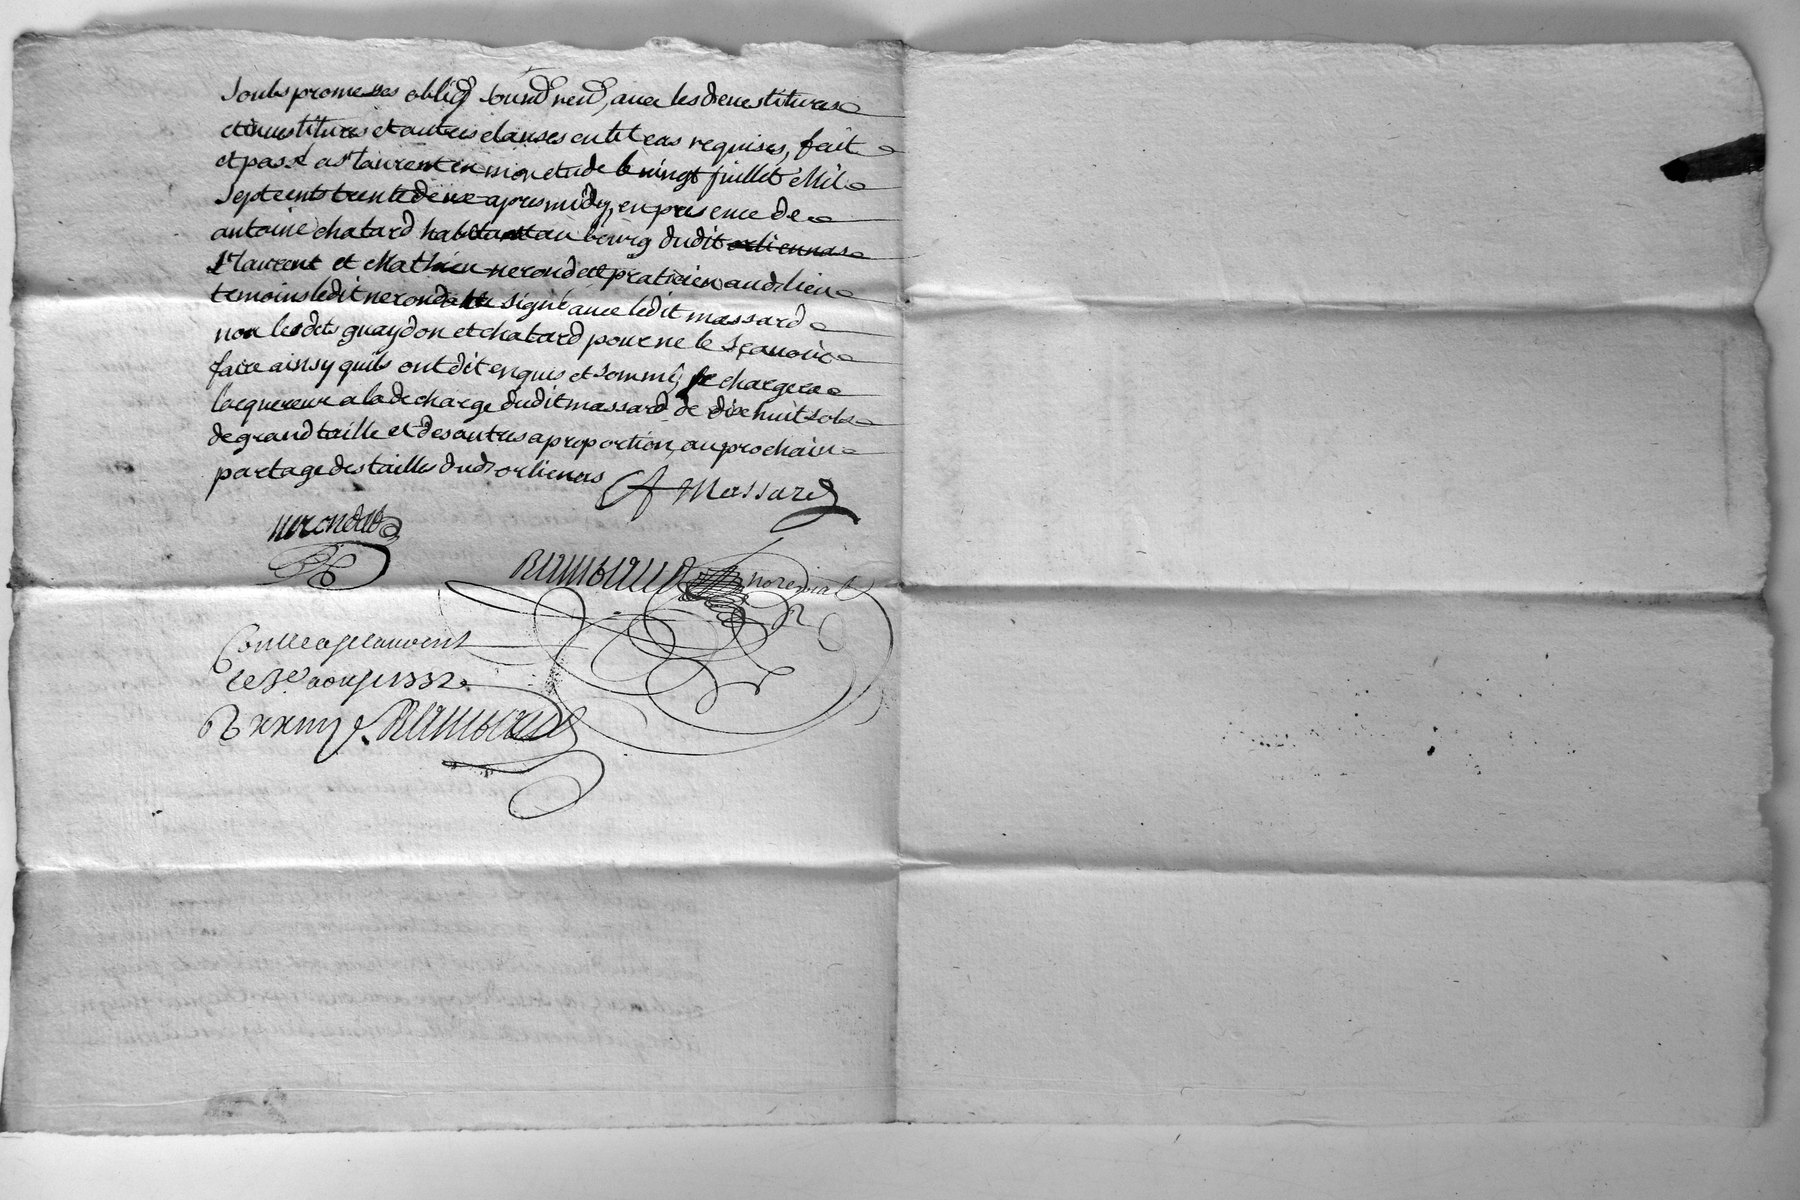 soubs promesses obligõn soum̃on renõn, avec les devestitures
et investitures et autres clauses en tel cas requises, fait
et passé a st laurent en mon etude le vingt juillet Mil
sept cents trente deux apres midy, en presence de
antoine chatard habitant au bourg dudit orliennas
st laurent et Mathieu nerondat praticien aud lieu
temoins ledit nerondat signé avec ledit massard
non lesdts guaydon et chatard pour ne le sçavoir
faire ainsy quils ont dit enquis et sommé, se chargera
lacquereur a la decharge dudit massard de dixhuit sols
de grand taille et des autres a proportion, au prochain
partage des tailles dudt orlienas
A Massard
nerondat
Raimbaud no. royal
Con.lle a st laurent
le 3e aoust 1732
R Raimbaud